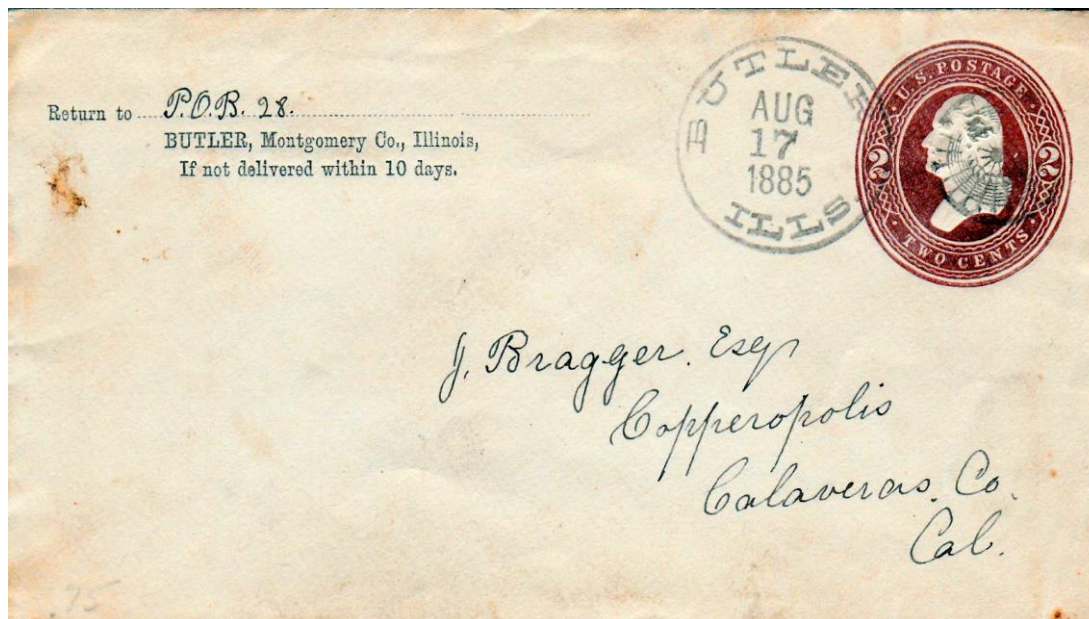 Return to P.O.B. 28.
BUTLER, Montgomery Co., Illinois,
If not delivered within 10 days.
BUTLER
AUG
17
1885
ILLS
U.S. POSTAGE
2 2
TWO CENTS
J. Bragger. Esq
Copperopolis
Calaveras. Co.
Cal.
.75